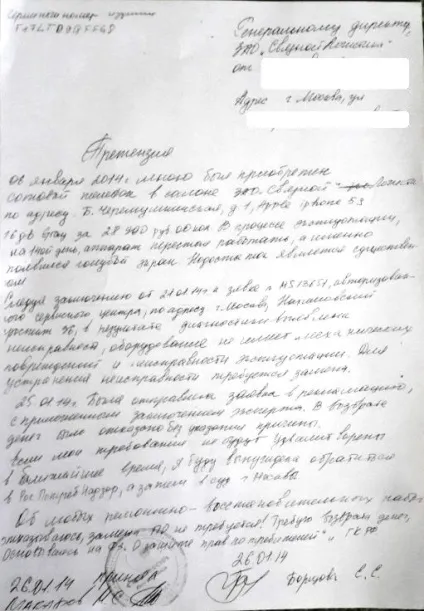 Серийный номер изделия
Генеральному директору
ЗАО "Связной Логистика"
от
Адрес г. Москва, ул
Претензия
06 января 2014 г. мною был приобретен
сотовый телефон в салоне ЗАО Связной Логистика
по адресу: Б. Черемушкинская, д 1, Apple iphone 5S
16 gb Gray за 28 990 рублей. В процессе эксплуатации,
на день, аппарат перестал работать, а именно
появился голубой экран. Недостаток является существен
ным
Следуя заключению от 21.01.14 и заявке № авторизован-
ного сервисного центра, по адресу г. Москва, Нахимовский
проспект 36, в результате диагностики выявлена
неисправность, оборудование не имеет механических
повреждений и неисправности эксплуатации. Для
устранения неисправности требуется замена.
25.01.14 г. Была отправлена заявка в рекламацию,
с приложением заключения эксперта. В возврате
денег было отказано без указания причины.
Если мои требования не будут удовлетворены
в ближайшее время, я буду вынуждена обратиться
в РосПотребНадзор, а затем в суд г. Москвы.
От любых ремонтно-восстановительных работ
отказываюсь, замена не требуется! Требую возврат денег,
Основываясь на ФЗ "О защите прав потребителей", ГК РФ
26.01.14
26.01.14 Приняла
С. С.